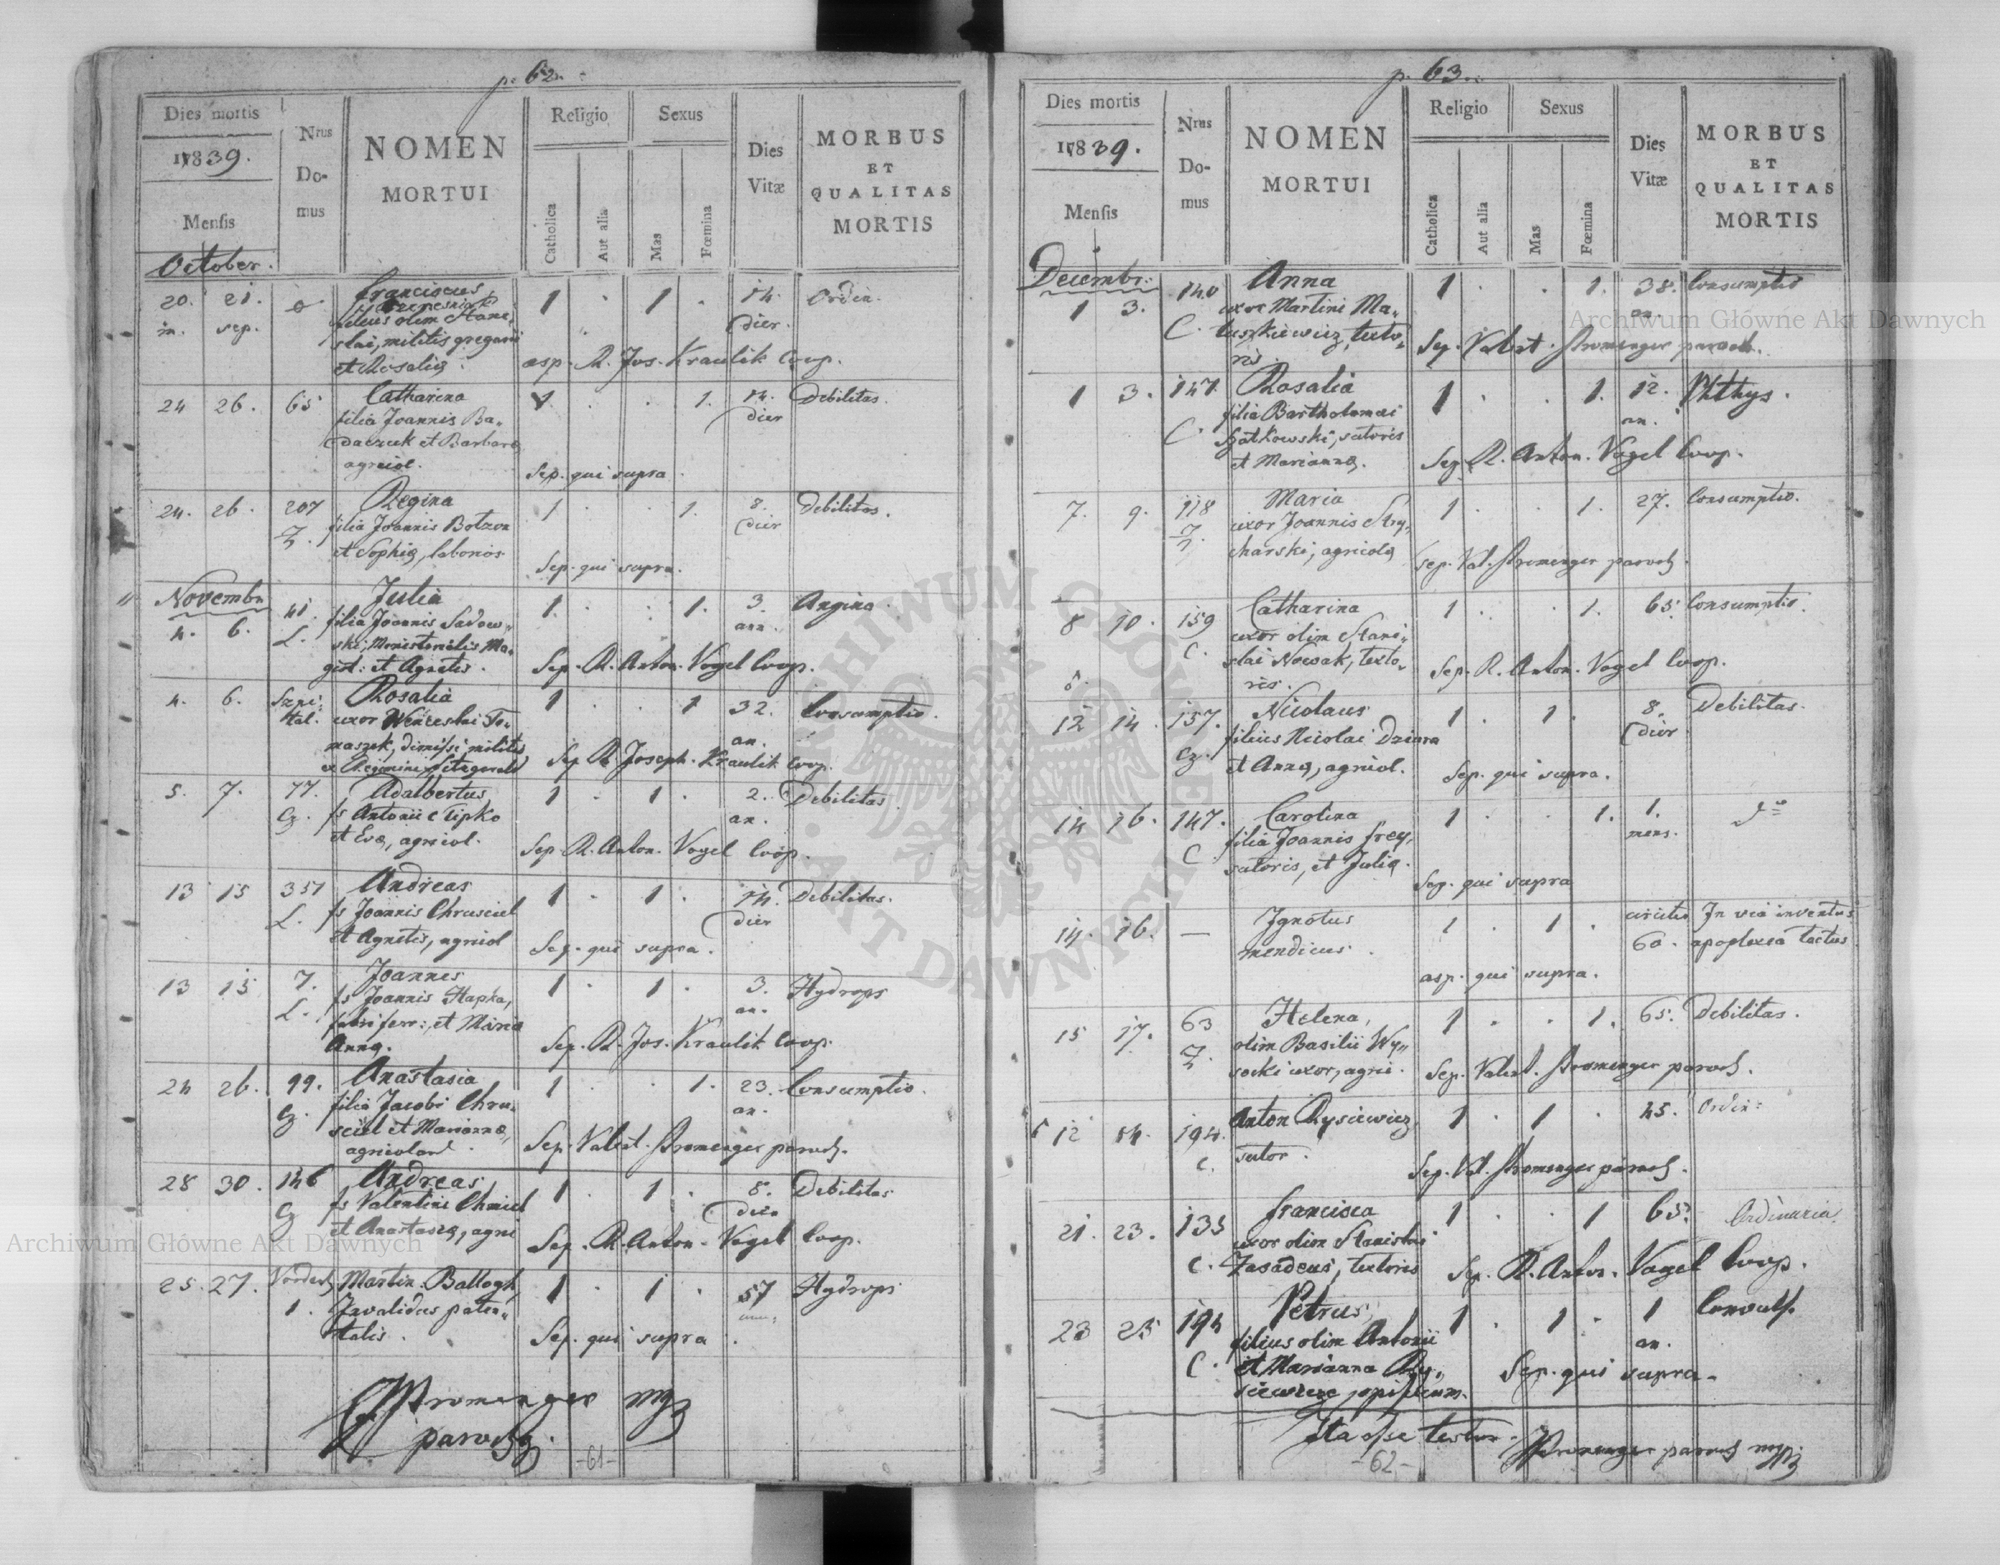 p. 62.
Dies mortis
1839.
Mensis
Nrus
Do-
mus
NOMEN
MORTUI
Religio
Catholica
Aut alia
Sexus
Mas
Fœmina
Dies
Vitæ
MORBUS
ET
QUALITAS
MORTIS
October.
20. 21. Franciscus 1 . 1 . 14. Ordin.
m. sep. filius olim Stani- dier.
slai, militis gregarii
et Rosaliæ. asp. R. Jos. Kraulik Coop.
24 26. 65 Catharina 1 . . 1. 14. Debilitas.
filia Joannis Ba- dier
daczuk et Barbaræ
agricol. Sep. qui supra.
24. 26. 207 Regina 1 . . 1. 8. Debilitas.
Z. filia Joannis Botzon dier
et Sophiæ, laborios. Sep. qui supra.
Novembr
4. 6. 41. Julia 1. . . 1. 3. Angina.
L. filia Joannis Sadow- an.
ski, Ma-
gist: et Agnetis. Sep. R. Anton. Vogel Coop.
4. 6. Szpi- Rosalia 1 . . 1 32. Consumptio.
tal. uxor Wenceslai To- an.
maszek, dimissi militis
ex Regimine Sep. R. Joseph. Kraulik Coop.
5. 7. 77. Adalbertus 1 . 1 . 2. Debilitas.
Cz. fs Antonii Cipko an.
et Evæ, agricol. Sep. R. Anton. Vogel Coop.
13 15 351 Andreas 1 . 1 . 14. Debilitas.
L. fs Joannis Chrusciel dier
et Agnetis, agricol Sep. qui supra.
13 15 7. Joannes 1 . 1 . 3. Hydrops
L. fs Joannis Hapka, an.
fabri ferr:, et Maria
Anna. Sep. R. Jos. Kraulik Coop.
24 26. 99. Anastasia 1 . . 1. 23. Consumptio.
Cz. filia Jacobi Chru- an.
sciel et Mariannæ,
agricolar. Sep. Valent. Promenger paroch.
28 30. 146 Andreas 1 . 1 . 8. Debilitas
Cz fs Valentini Chmiel dier
et Anastasiæ, agri Sep. R. Anton. Vogel Coop.
25. 27. Martin. Ballogh, 1 . 1 . 57 Hydrops
1. Invalidus paten-
talis. Sep. qui supra.
Promenger mpz
paroch.
-61-
p. 63.
Dies mortis
1839.
Mensis
Nrus
Do-
mus
NOMEN
MORTUI
Religio
Catholica
Aut alia
Sexus
Mas
Fœmina
Dies
Vitæ
MORBUS
ET
QUALITAS
MORTIS
Decembr:
1 3. 140 Anna 1 . . 1. 38. Consumptio
C. uxor Martini Ma- an.
tuszkiewicz, texto-
ris. Sep. Valent. Promenger paroch.
1 3. 147. Rosalia 1 . . 1. 12. Phthys.
C. filia Bartholomæi an.
Gatkowski, sutoris
et Mariannæ. Sep. R. Anton. Vogel Coop.
7. 9. 118 Maria 1 . . 1. 27. Consumptio.
Z. uxor Joannis Stry-
charski, agricolæ Sep. Val. Promenger paroch.
8 10. 159 Catharina 1 . . 1. 65. Consumptio.
C. uxor olim Stani-
slai Nowak, texto-
ris. Sep. R. Anton. Vogel Coop.
12 14. 157. Nicolaus 1 . 1 . 8. Debilitas.
Cz. filius Nicolai Dziura dier
et Annæ, agricol. Sep. qui supra.
14 16. 147. Carolina 1 . . 1. 1. dto
C filia Joannis Frey, mens.
sutoris, et Juliæ. Sep. qui supra
14. 16. — Ignotus 1 . 1 . circiter In via inventus
mendicus. 60. apoplexia tactus.
asp. qui supra.
15 17. 63 Helena, 1 . . 1. 65. Debilitas.
Z. olim Basilii Wy-
socki uxor, agric. Sep. Valent. Promenger paroch.
12 14. 194. Anton Rysiewicz 1 . 1 . 45. Ordin:
C. sutor. Sep. Val. Promenger paroch.
21. 23. 135 Francisca 1 . . 1 65. Ordinaria.
C. uxor olim Stanislai
Zasadeus, textoris Sep. R. Anton. Vogel Coop.
23 25 194 Petrus, 1 . 1 . 1 Convuls.
C. filius olim Antonii an.
et Marianna Ry-
siewicze Sep. qui supra.
Ita esse testor.
Promenger paroch mpz
-62-
Archiwum Główne Akt Dawnych
Archiwum Główne Akt Dawnych
ARCHIWUM GŁÓWNE
AKT DAWNYCH